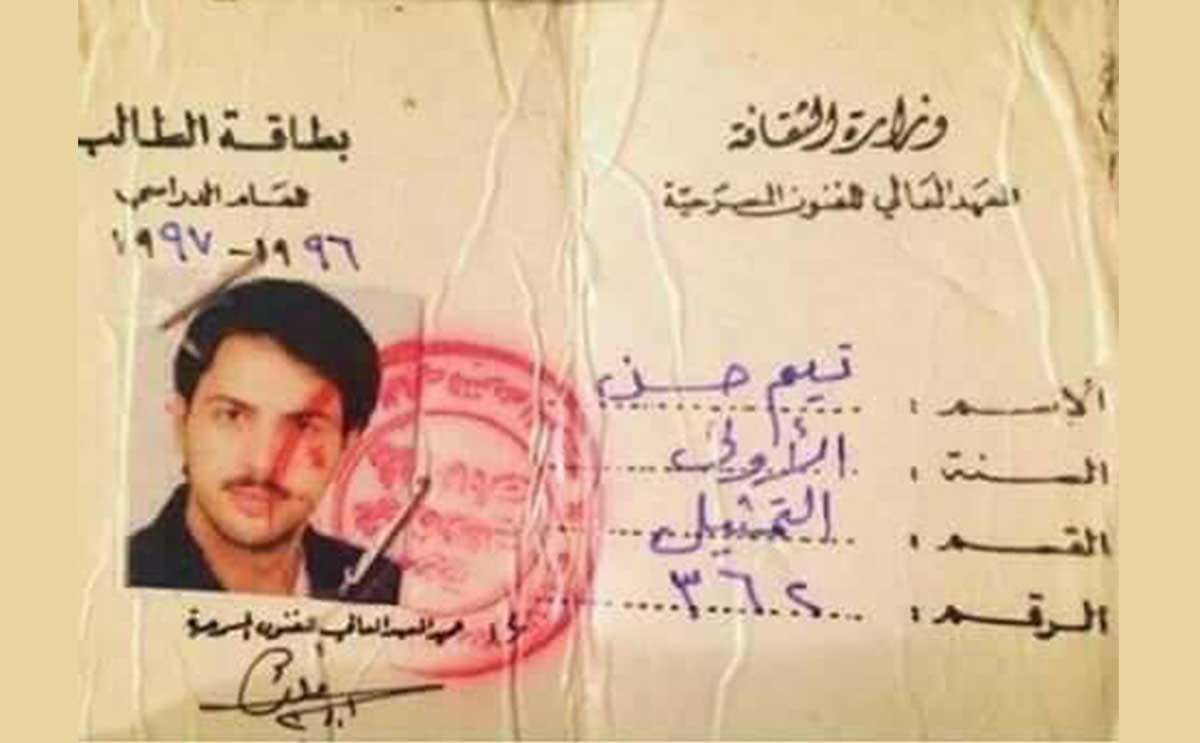 وزارة الثقافة
المعهد العالي للفنون المسرحية
الاسم : تيم حسن
السنة : الأولى
القسم : التمثيل
الرقم : ٣٦٢
بطاقة الطالب
للعام الدراسي
١٩٩٦ - ١٩٩٧
عميد المعهد العالي للفنون المسرحية